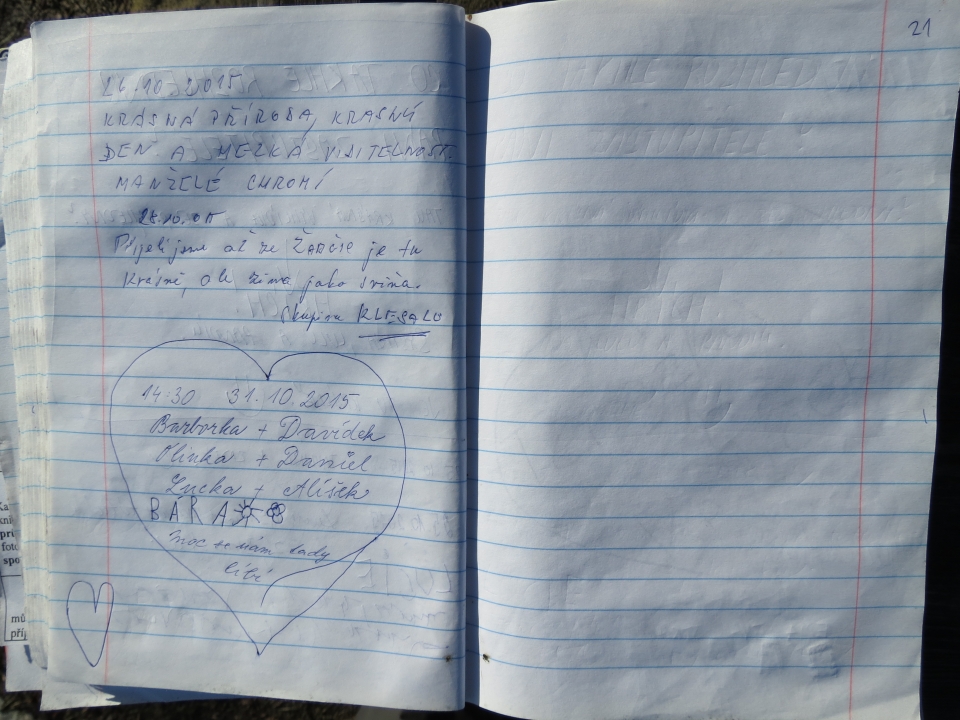 26.10.2015
KRÁSNÁ PŘÍRODA, KRASNÝ
DEN A HEZKÁ VIDITELNOST.
MANŽELÉ CHROMÍ
28.10.
Přijeli jsme až ze je tu
krásně, ale zima jako sviňa.
Skupina KLESALO
14:30 31.10.2015
Barborka + Davídek
Olinka + Daniel
Lucka + Alíšek
BÁRA
moc se nám tady
líbí
21